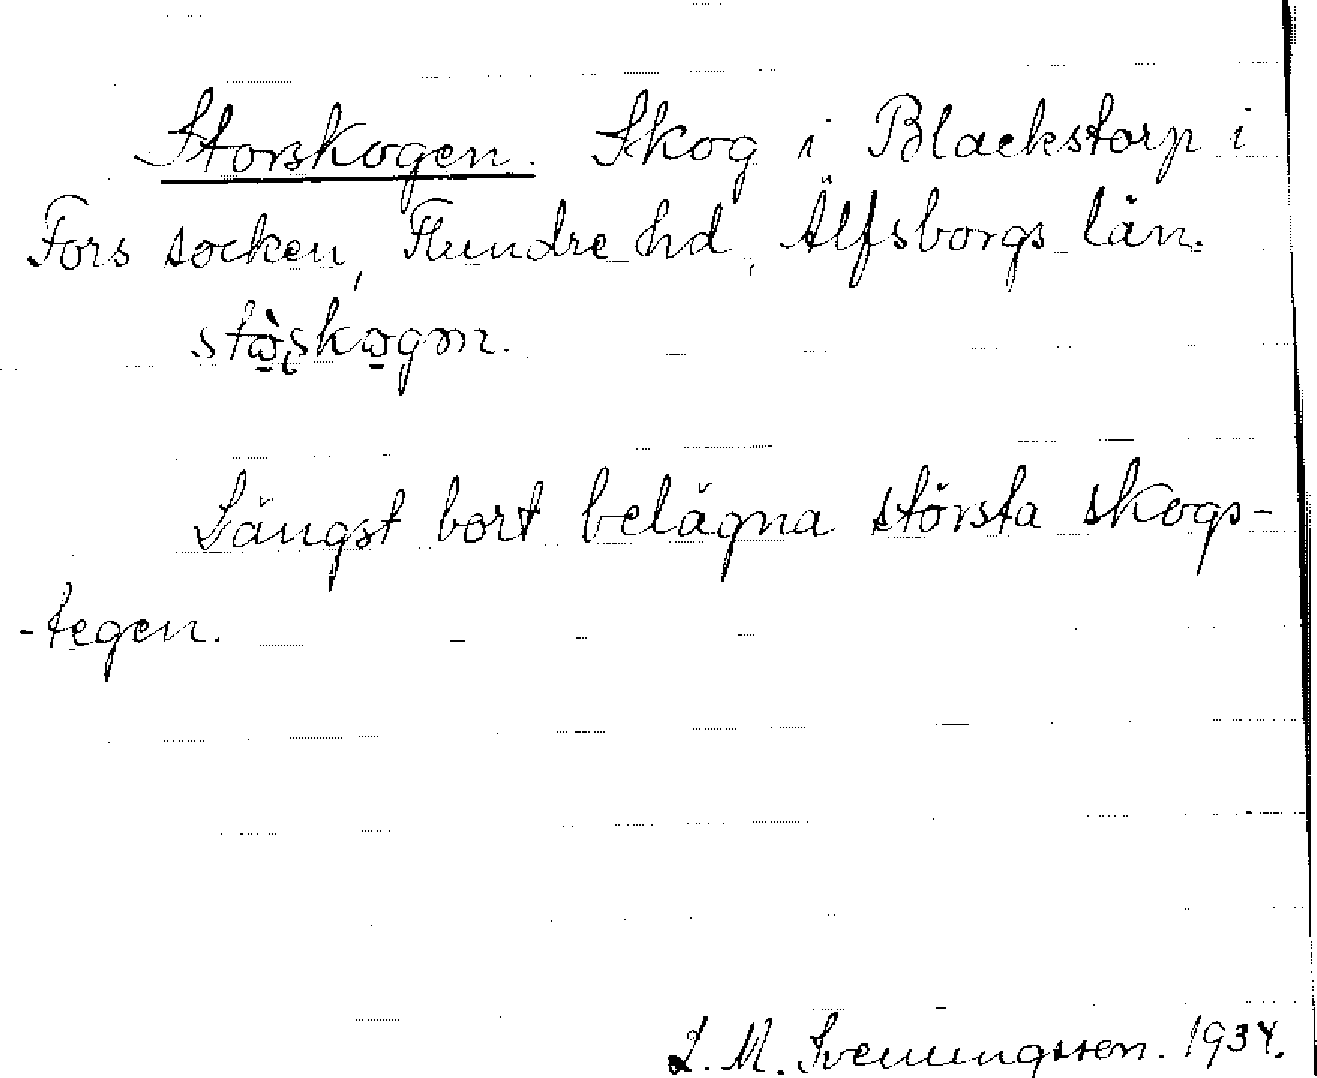 Storskogen. Skog i Blackstorp i
Fors socken, Flundre hd, Älfsborgs län.
Längst bort belägna största skogs-
-tegen.
L. M. Svenungsson. 1934.